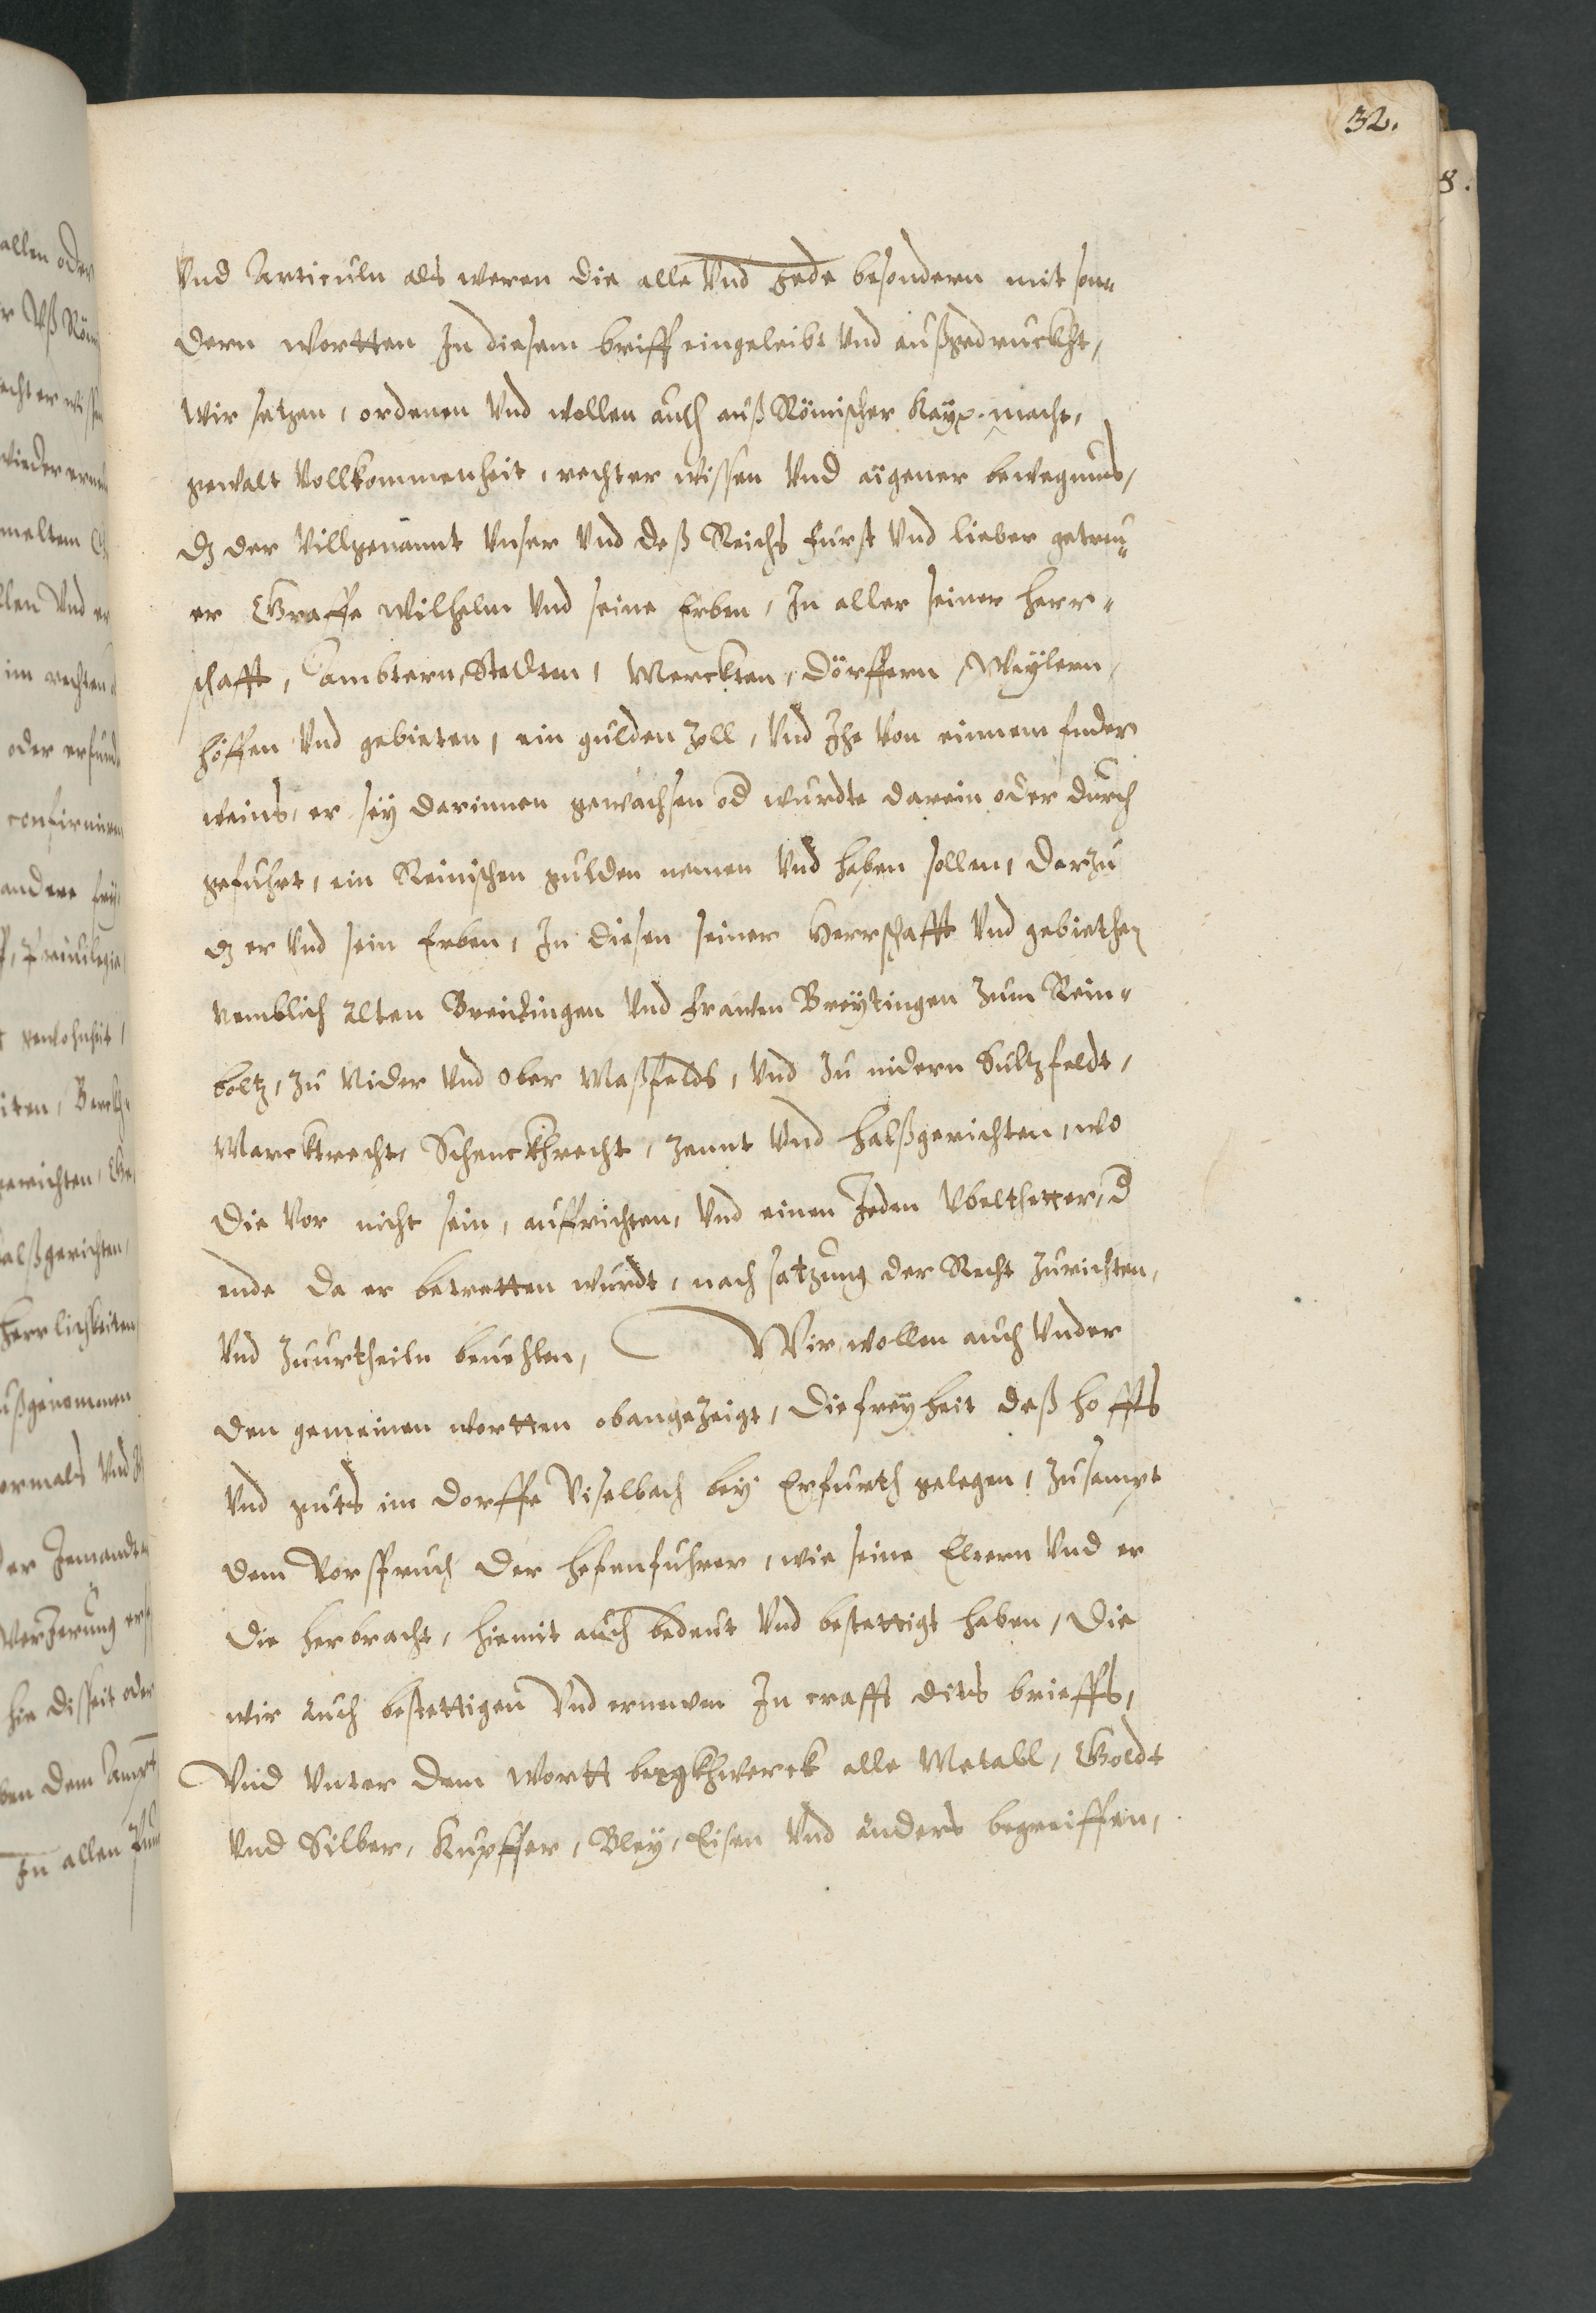 32.
8.
Vnd Articuln als weren die alle Vnd Jede besondern mit son¬
dern wortten In diesem briff eingeleibt Vnd außgedruckht,
Wir setzen, ordenen Vnd wollen auch auß Römischer Kayß. macht,
gewalt Vollkommenheit, rechter wissen Vnd aigener bewegnus,
dz der Villgenannt Vnser Vnd deß Reichs Furst Vnd lieber getreu¬
er Graffe Wilhelm Vnd seine Erben, In aller seiner Herr¬
schafft, Ambtern, Stedten, Merckten, Dörffern, Weylern,
höffen Vnd gebieten, ein gulden Zoll, Vnd Ihe Von einnem fuder
weins, er sey darinnen gewachsen od wurdte darein oder durch
gefuhrt, ein Reinischen gulden nemen Vnd haben sollen, darzu
dz er Vnd sein Erben, In diesen seiner Herrschafft Vnd gebiethen
nemblich Alten Breitingen Vnd Frauen Breytingen Zum Rein¬
boltz, Zu Nider Vnd Ober Maßfelds, Vnd Zu nidern Sultzfeldt,
Marcktrecht, Schenckhrecht, Zennt Vnd Halßgerichten, wo
die Vor nicht sein, auffrichten, Vnd einen Jeden Vbelthetter, d
ende da er betretten wurdt, nach satzung der Recht Zurichten,
Vnd Zuurtheiln beuehlen, Wir wollen auch Vnder
den gemeinen wortten obangezeigt, die freyheit deß hoffs
Vnd guts im Dorffe Viselbach bey Erfurth gelegen, Zusampt
dem Vorspruch der Hefenfuhrer, wie seine Eltern Vnd er
die herbracht, hiemit auch bedeut Vnd bestettigt haben, die
wir auch bestettigen Vnd ernewen In crafft dits brieffs,
Vnd Vnter dem Wortt bergkhwerck alle Metall, Goldt
Vnd Silber, Kupffer, Bley, Eisen Vnd anders begreiffen,